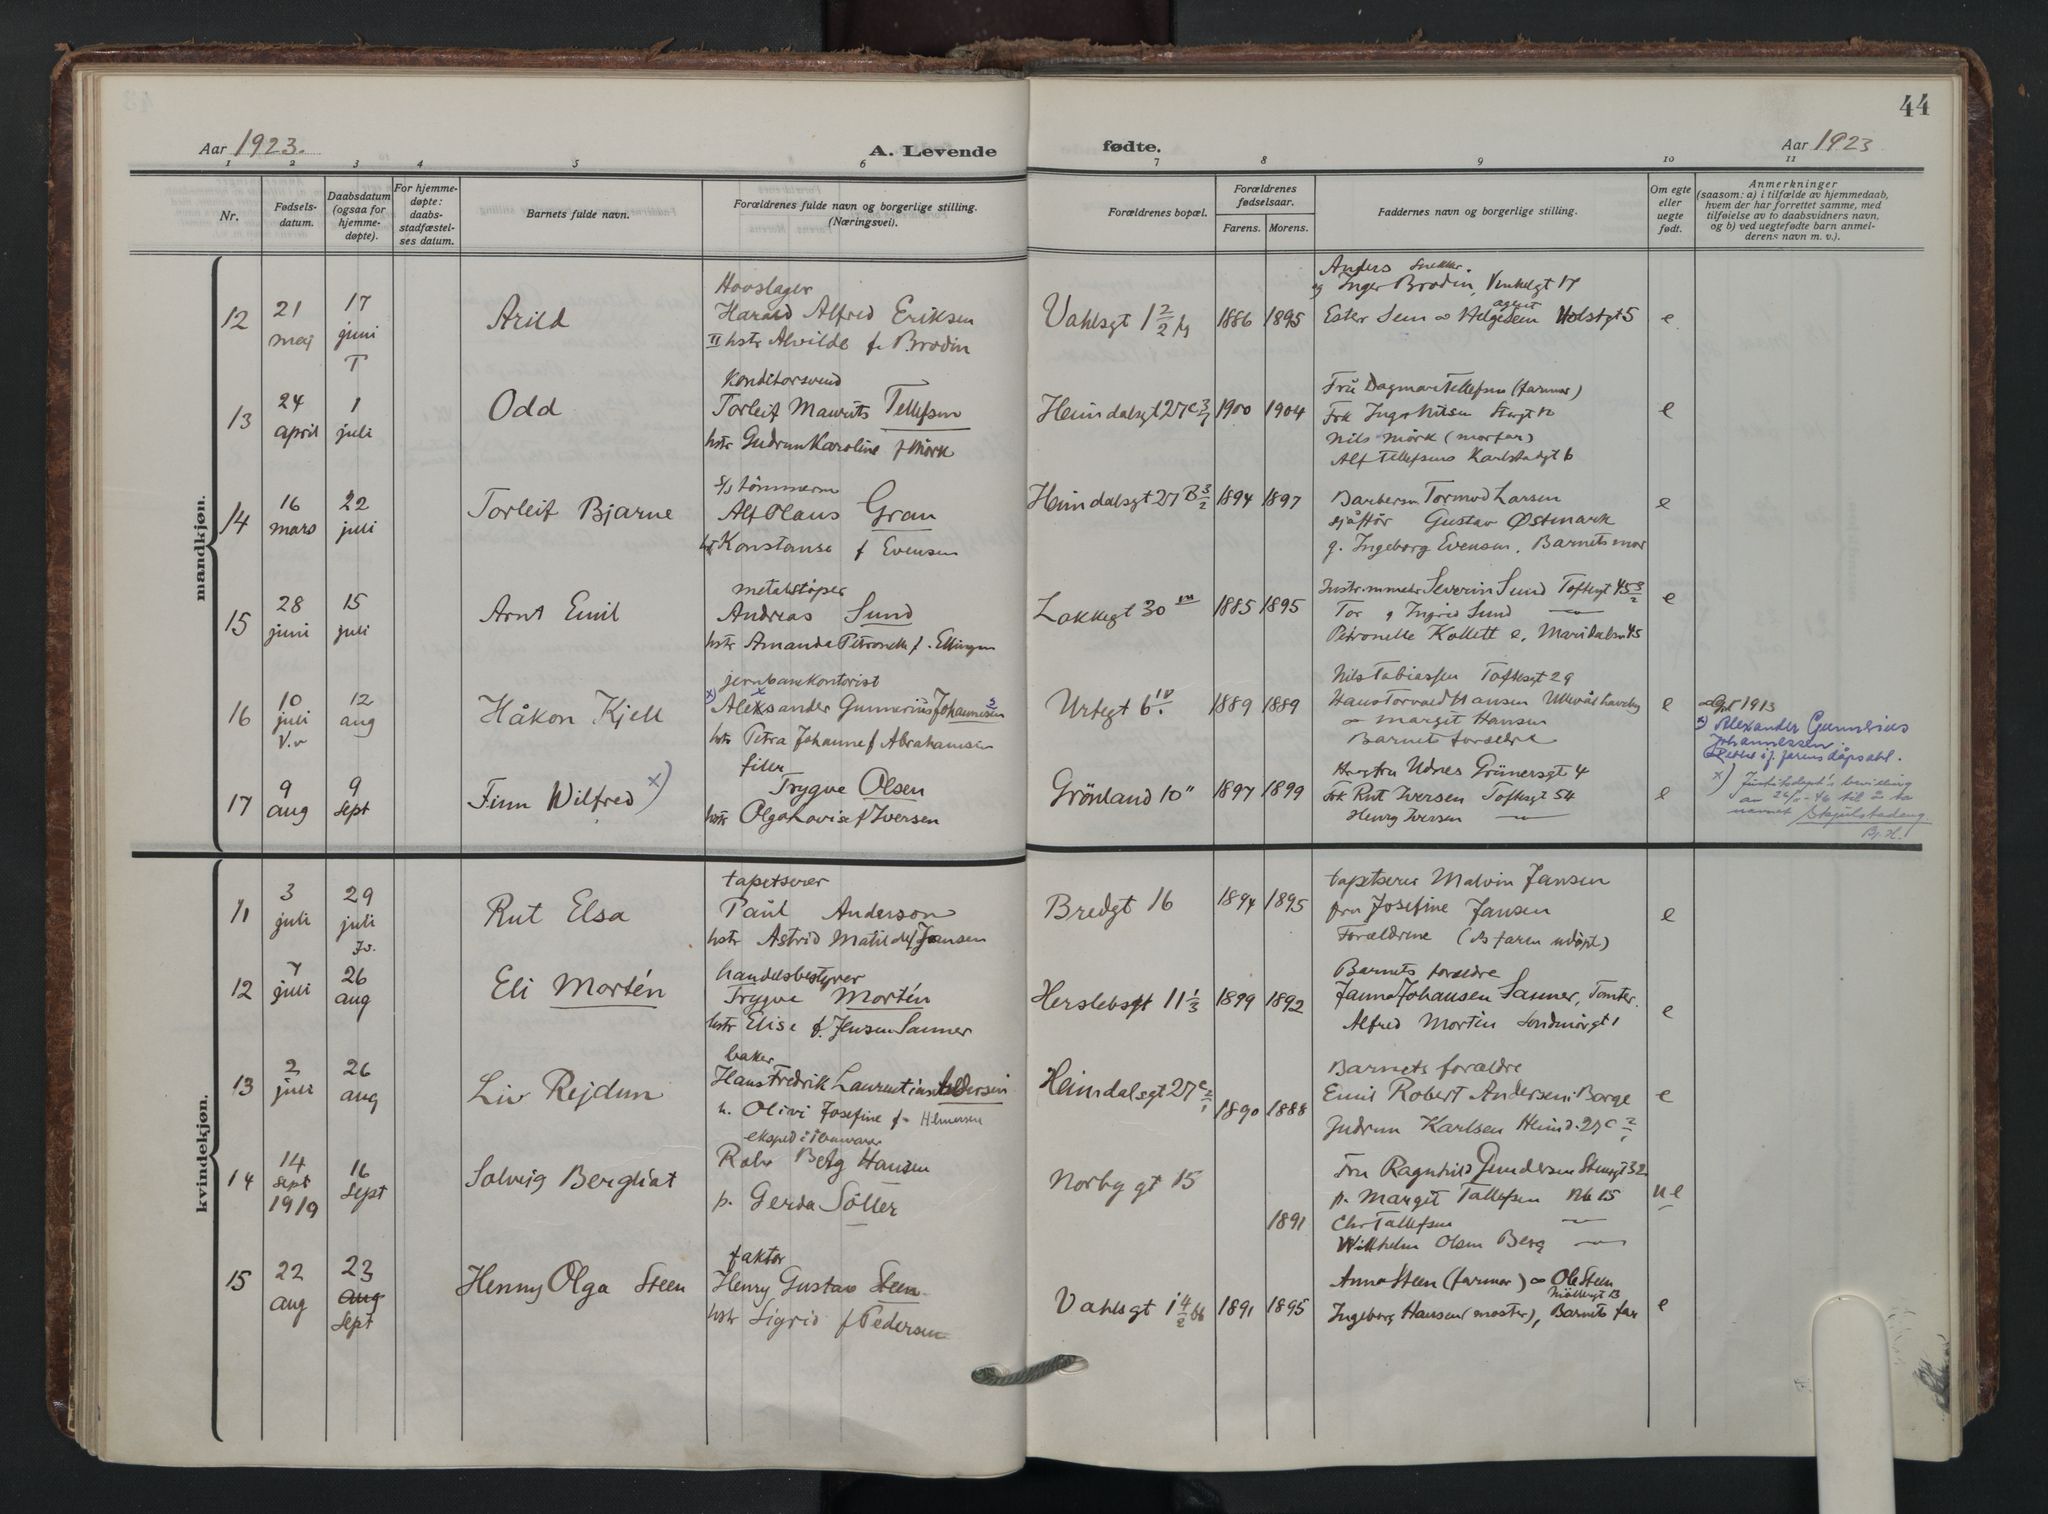 44
Aar 1923.
A. Levende
fødte.
Aar 1923
1 2 3 4 5 6 7 8 9 10 11
Nr.
Fødsels-
datum.
Daabsdatum
(ogsaa for
hjemme-
døpte).
For hjemme-
døpte:
daabs-
stadfæstel-
ses datum.
Barnets fulde navn.
Forældrenes fulde navn og borgerlige stilling.
(Næringsvei).
Forældrenes bopæl.
Forældrenes
fødselsaar.
Farens. Morens.
Faddernes navn og borgerlige stilling.
Om egte
eller
uegte
født.
Anmerkninger
(saasom: a) i tilfælde av hjemmedaab,
hvem der har forrettet samme, med
tilføielse av to daabsvidners navn,
og b) ved uegtefødte barn anmel-
derens navn m. v.).
mandkjøn.
12
21
maj
17
juni
T
Arild
Hovslager
Harald Alfred Eriksen
II hstr Alvilde f. Brodin
Vahlsgt 1 2/2
1886 1895
Anders
og Inger Brodin,
Ester Sem
e
13
24
april
1
juli
Odd
Konditorsvend
Torleif Maurits Tellefsen
hstr Gudrun Karoline f Mørk
Heimdalsgt 27c
1900 1904
Fru Dagmar Tellefsen (farmor)
Frk Inga Nilsen
Nils Mørk (morfar)
Alf Tellefsens Karlstadgt 6
e
14
16
mars
22
juli
Torleif Bjarne
Alf Olaus Gran
Konstanse f Evensen
Heimdalsgt 27 B 3/2
1894 1897
Barbersv Tormod Larsen
sjåffør Gustav Østmark
g. Ingeborg Evensen, Barnets mor
e
15
28
juni
15
juli
Arnt Emil
metalstøper
Andreas Sund
hstr Amanda Petronelle f. Ellingsen
Lakkegt 30
1885 1895
Severin Sund Toftesgt 45 3/2
Tor g Ingrid Sund
Petronelle Kollett e,
e
16
10
juli
12
aug
Håkon Kjell
jernbanekontorist
Aleksander Gunnerius Johannesen
hstr Petra Johanne f Abrahamsen
Urtegt 6 IV
1889 1889
Nils Tobiassen Toftesgt 29
Hans Torvald Hansen
Margit Hansen
Barnets forældre
e
1913
x) Alexander Gunnerius
Johannessen.
17
9
aug
9
sept
Finn Wilfred x)
filer
Trygve Olsen
hstr Olga Lovise f Iversen
Grønland 10 II
1897 1899
Udnes Grünersgt 4
Frk Rut Iversen Toftesgt 54
Henry Iversen
e
x) Justisdept's bevilling
av 26/ - 46 til å ta
navnet Skjulstadeng
kvindekjøn.
11
3
juli
29
juli
Rut Elsa
tapetserer
Paul Anderson
hstr Astrid Matilde f Jansen
Bredgt 16
1894 1895
tapetserer Malvin Jansen
fru Josefine Jansen
Forældrene
e
12
7
juli
26
aug
Eli Mortén
handelsbestyrer
Trygve Mortén
hstr Elise f. Jensen Sanner
Herslebsgt 11 1/3
1899 1892
Barnets forældre
Janna Johansen Sanner,
Alfred Mortén
e
13
2
juli
26
aug
Liv Rejdun
baker
Hans Fredrik Laurentius Andersen
h. Olivi Josefine f.
Heimdalsgt 27c
1890 1888
Barnets forældre
Emil Robert Andersen: Borge
Gudrun Karlsen Heimd. 27c
e
14
14
sept
1919
16
sept
Solveig Bergliot
Rolv Berg Hansen
p. Gerda Söller
Norbygt 15
1891
Fru Ragnhild Gundersen Stensgt 32
p. Margit Tallefsen Nb 15
Chr Tallefsen
Willhelm Olsen Berg
u e
15
22
aug
23
aug
sept
Henny Olga Steen
faktor
Henry Gustav Steen
hstr Sigrid f Pedersen
Vahlsgt 1
1891 1895
Anna Steen (farmor) Ole Steen
Ingeborg Hansen (moster), Barnets far
e